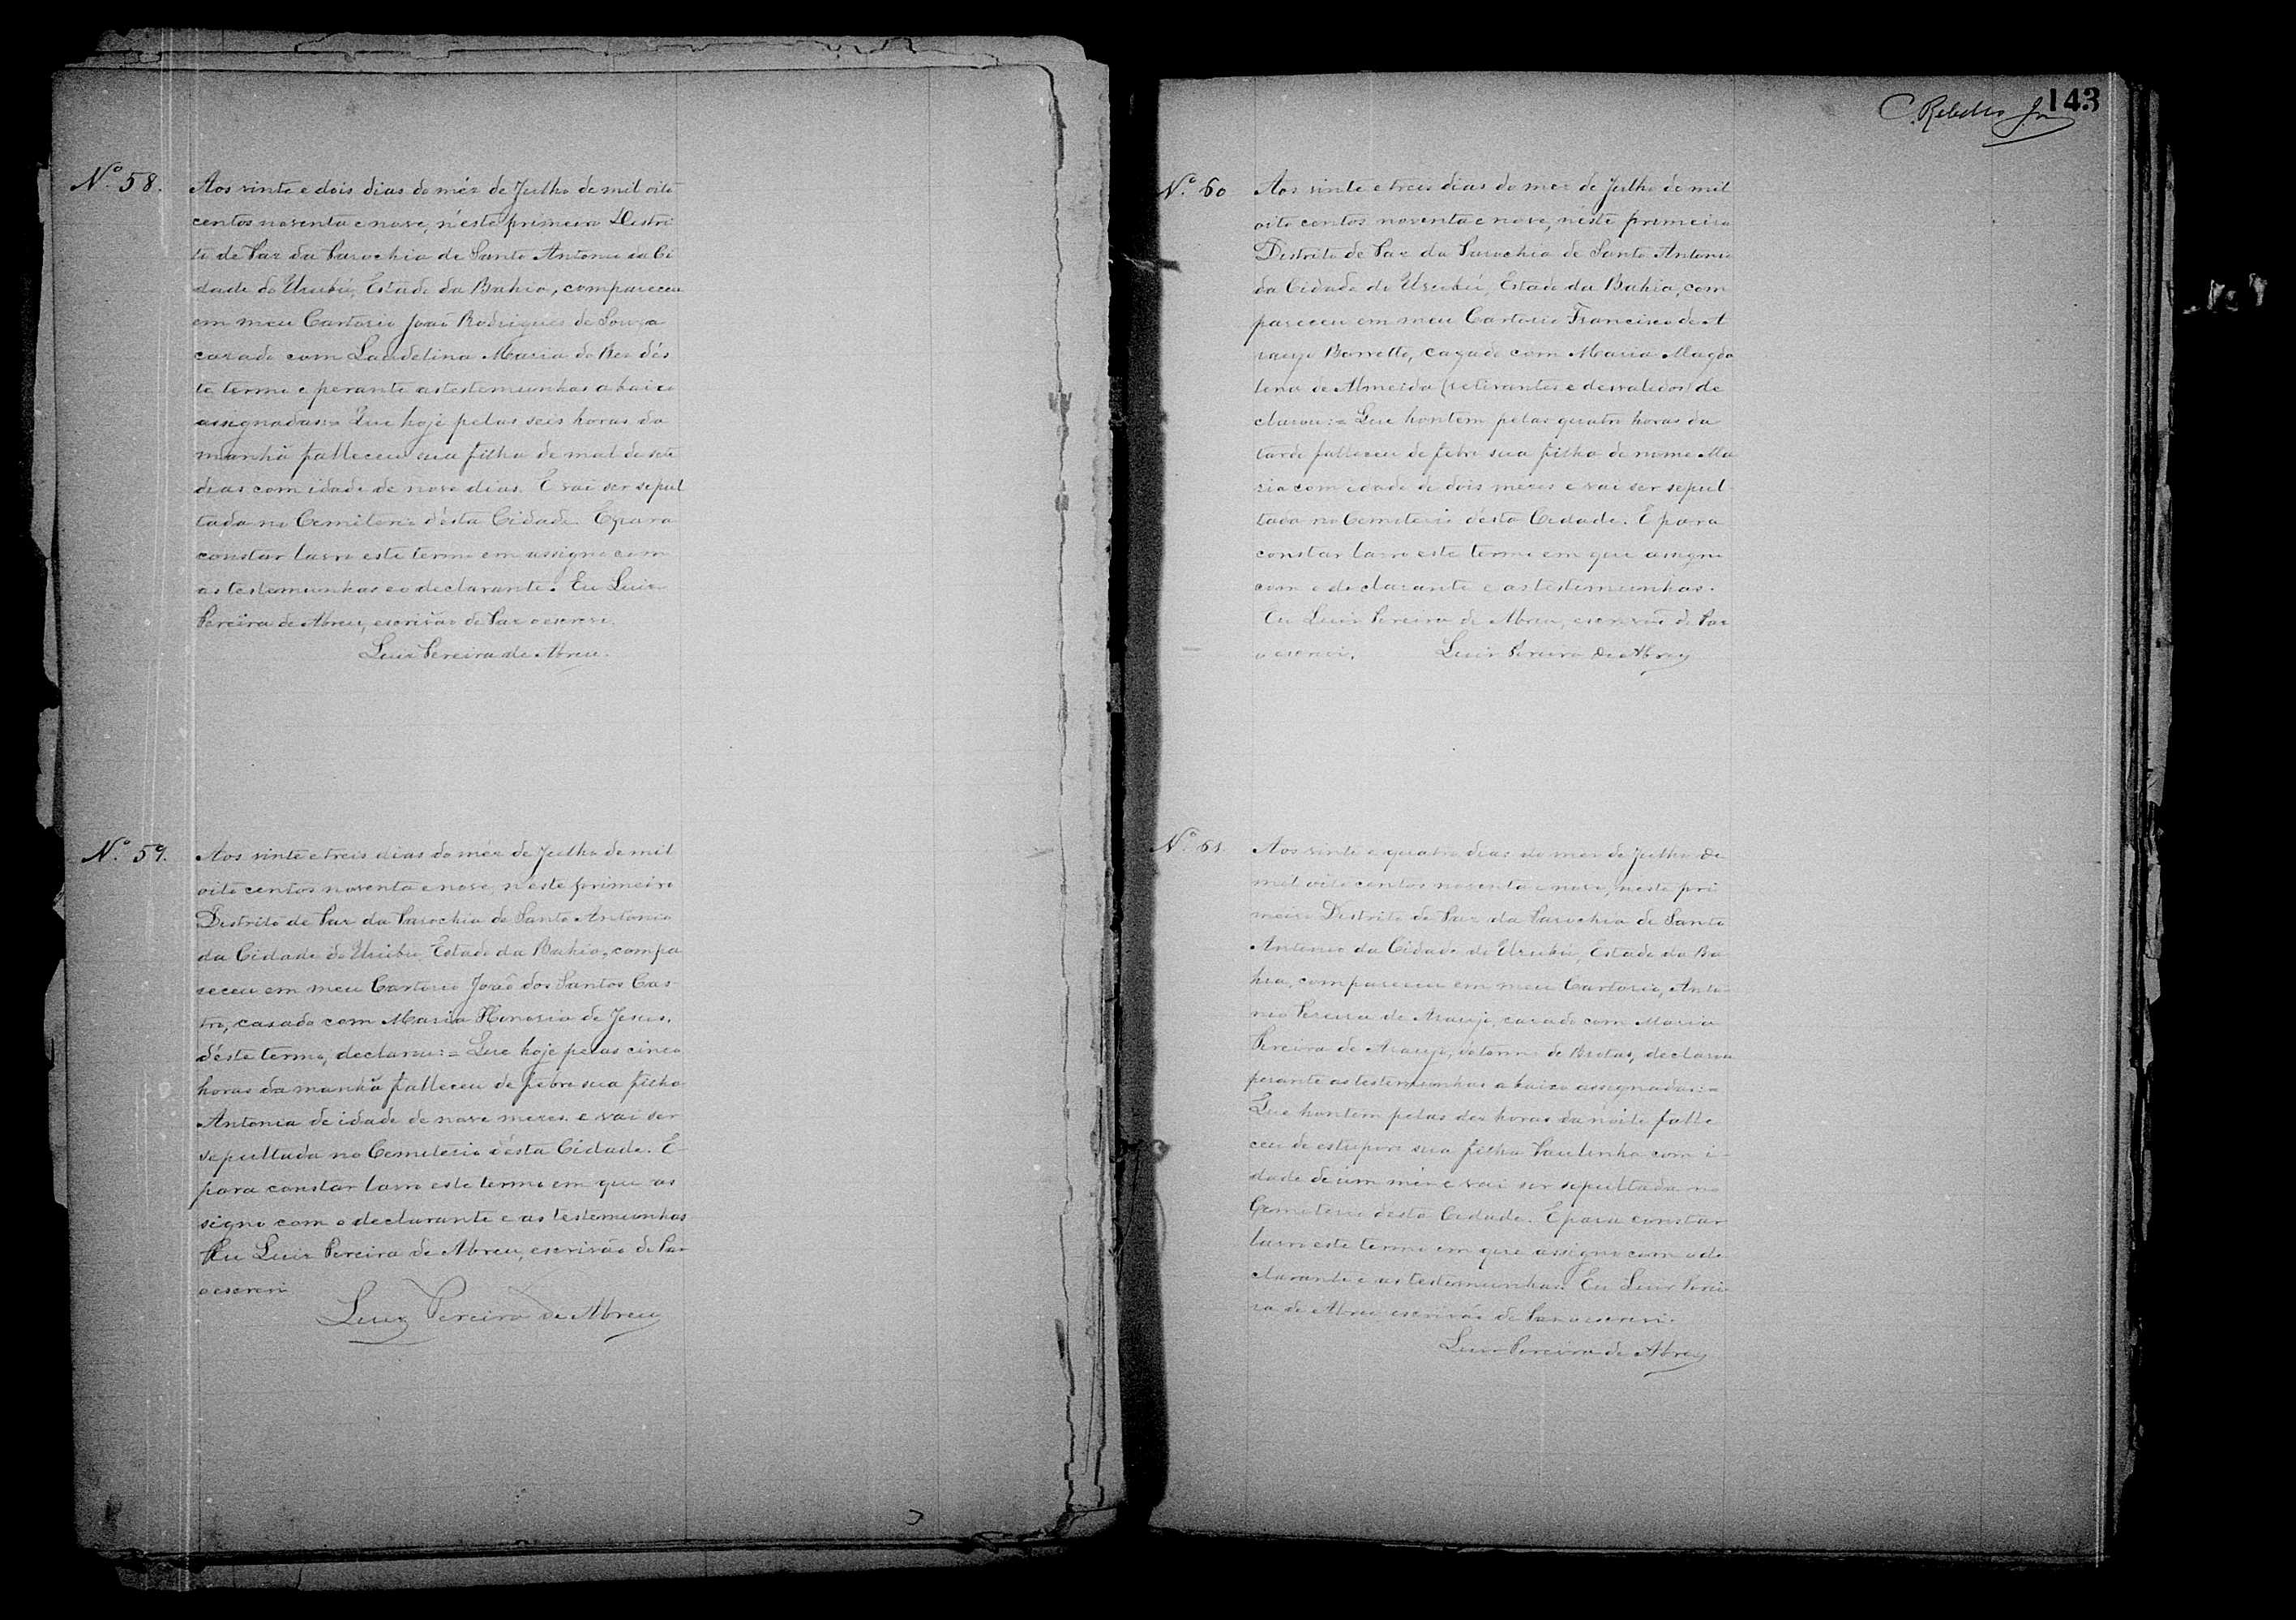 Nº 58.
Aos vinte e dois dias do mês de Julho de mil oito
centos noventa e nove, n'este primeiro Distri
to de Paz da Parochia de Santo Antonio da Ci
dade do Urubú, Estado da Bahia, compareceu
em meu Cartorio João Rodrigues de Souza
cazado com Laudelina Maria do dés
te termo e perante as testemunhas abaixo
assignadas:= Que hoje pelas seis horas da
manhã falleceu sua filha de mal de sete
dias com idade de nove dias. E vai ser sepul
tada no Cemiterio d'esta Cidade. E para
constar lavro este termo em assigno com
as testemunhas e o declarante. Eu Luiz
Pereira de Abreu, escrivão de Paz o escrevi.
Luiz Pereira de Abreu.
Nº 59.
Aos vinte e treis dias do mez de Julho de mil
oito centos noventa e nove, n'este primeiro
Distrito de Paz da Parochia de Santo Antonio
da Cidade do Urubu Estado da Bahia, compa
receu em meu Cartorio João dos Santos Cas-
tro, casado com Maria Honoria de Jesus,
d'éste termo, declarou:= Que hoje pelas cinco
horas da manhã falleceu de febre sua filha
Antonia de idade de nove mezes. e vai ser
sepultada no Cemeterio d'ésta Cidade. E
para constar lavro este termo em que as
signo com o declarante e as testemunhas
Eu Luiz Pereira de Abreu, escrivão de Paz
o escrevi
Luiz Pereira de Abreu
143
C. Rebello Jor
Nº 60
Aos vinte e treis dias do mez de Julho de mil
oito centos noventa e nove, n'este primeiro
Distrito de Paz da Parochia de Santo Antonio
da Cidade do Urubú, Estado da Bahia, com
pareceu em meu Cartorio Francisco de A
raujo Barretto, cazado com Maria Magda
lena de Almeida (retirantes e desvalidos) de
clarou:= Que hontem pelas quatro horas da
tarde falleceu de febre sua filha de nome Ma
ria com idade de dois mezes e vai ser sepul
tada no Cemeterio d'ésta Cidade. E para
constar lavro este termo em que assigno
com o declarante e as testemunhas.
Eu Luiz Pereira de Abreu, escrivão de Paz
o escrevi. Luiz Pereira de Abreu
Nº 61
Aos vinte e quatro dias do mez de Julho de
mil oito centos noventa e nove, neste pri
meiro Distrito de Paz da Parochia de Santo
Antonio da Cidade do Urubú, Estado da Ba
hia, compareceu em meu Cartorio, Anto-
nio Pereira de Araujo, cazado com Maria
Pereira de Araujo, do termo de Brotas, declarou
perante as testemunhas abaixo assignadas:=
Que hontem pelas dez horas da noite falle
ceu de estupor sua filha Paulinha com i-
dade de um mez e vai ser sepultada no
Cemeterio desta Cidade. E para constar
lavro este termo em que assigno com o de
clarante e as testemunhas. Eu Luiz Perei
ra de Abreu escrivão de Paz o escrevi.
Luiz Pereira de Abreu